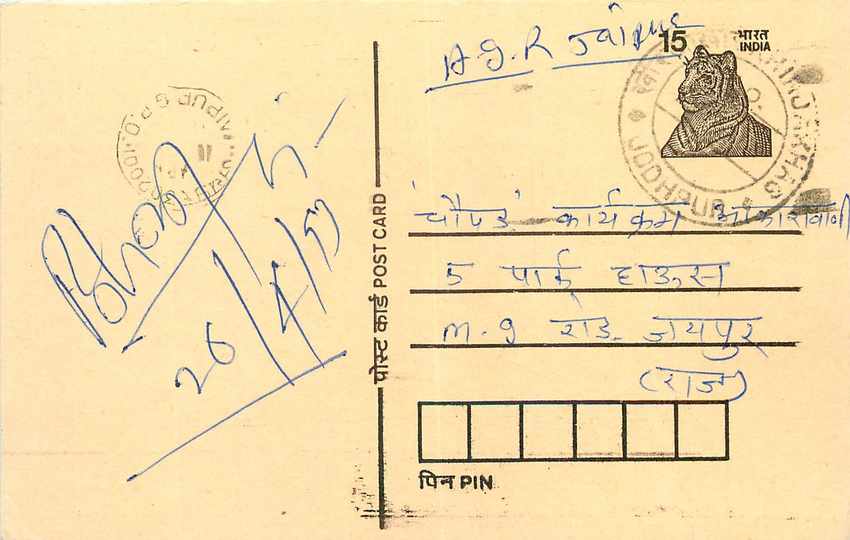 A.G.R Jaipur
15 भारत
INDIA
JODHPUR
JAIPUR G.P.O.
पोस्ट कार्ड POST CARD
'चौपड' कार्य क्रम आकाशवाणी
5 पार्क हाऊस
M.g रोड. जयपुर
(राज)
पिन PIN